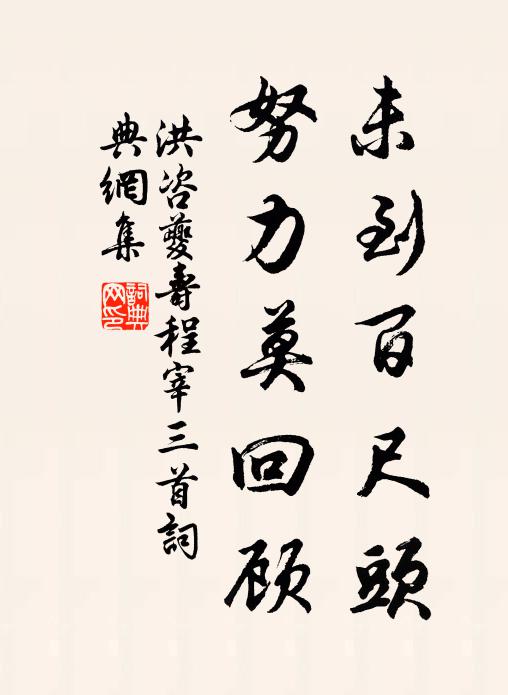 未到百尺頭
努力莫回顾
洪咨夔壽程宰三首詞
典網集
詞典
网印